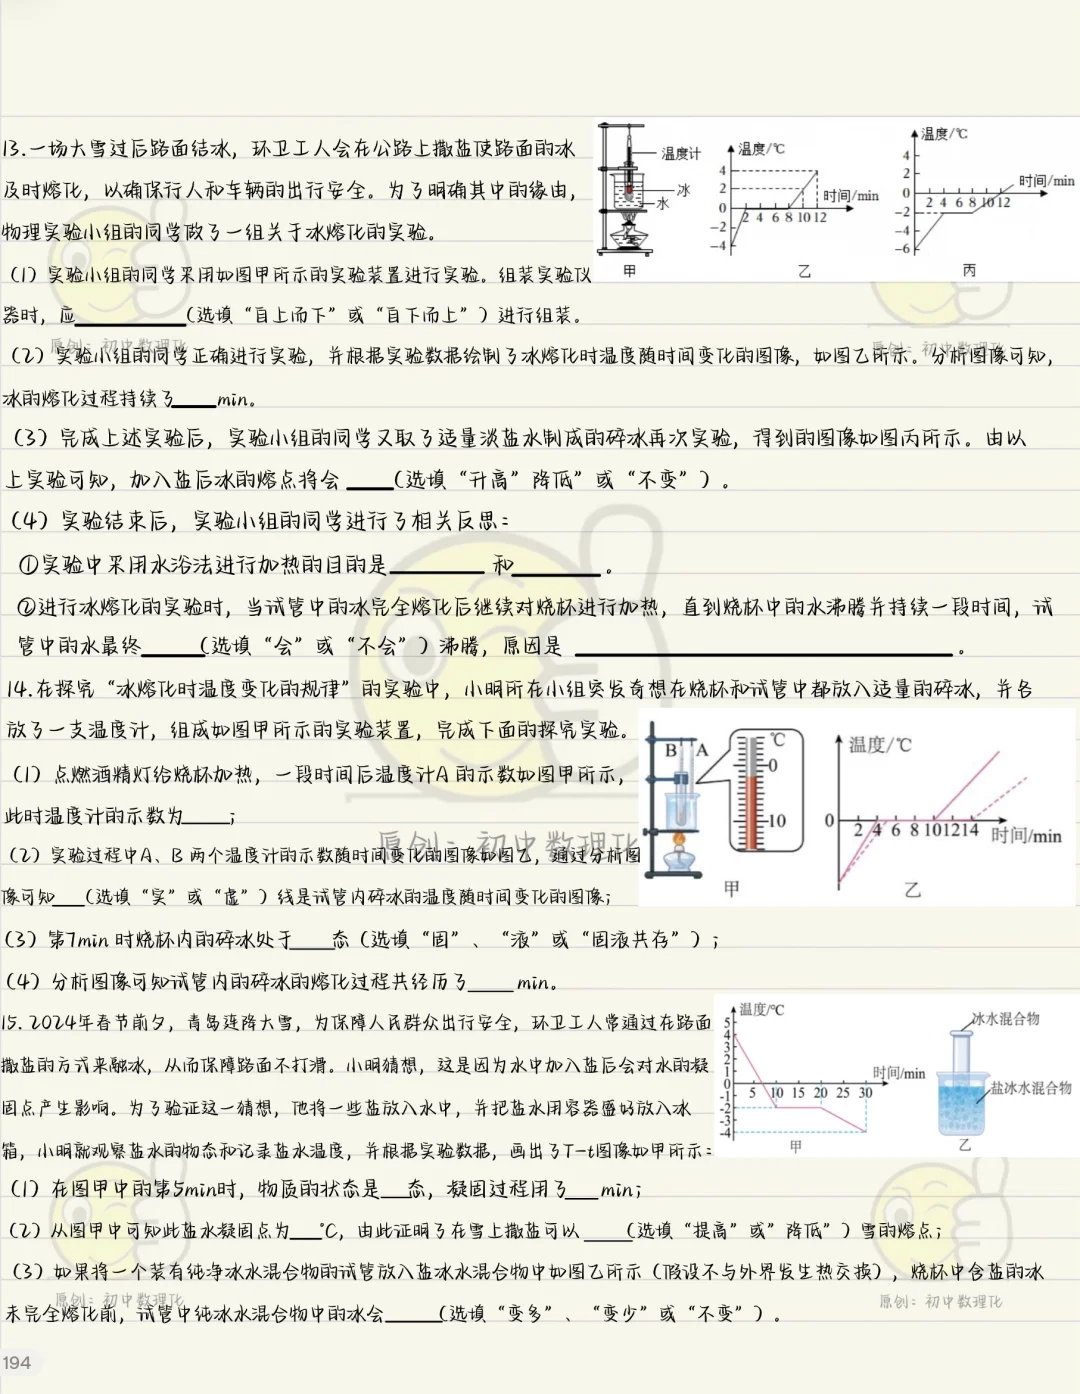 13.一场大雪过后路面结冰，环卫工人会在公路上撒盐使路面的冰
及时熔化，以确保行人和车辆的出行安全。为了明确其中的缘由，
物理实验小组的同学做了一组关于冰熔化的实验。
温度计
冰
水
甲
温度/℃
4
2
0
-2
-4
2 4 6 8 10 12
时间/min
乙
温度/℃
4
2
0
-2
-4
-6
2 4 6 8 10 12
时间/min
丙
（1）实验小组的同学采用如图甲所示的实验装置进行实验。组装实验仪
器时，应______（选填“自上而下”或“自下而上”）进行组装。
原创：初中数理化
原创：初中数理化
（2）实验小组的同学正确进行实验，并根据实验数据绘制了冰熔化时温度随时间变化的图像，如图乙所示。分析图像可知，
冰的熔化过程持续了____min。
（3）完成上述实验后，实验小组的同学又取了适量淡盐水制成的碎冰再次实验，得到的图像如图丙所示。由以
上实验可知，加入盐后冰的熔点将会____（选填“升高”降低”或“不变”）。
（4）实验结束后，实验小组的同学进行了相关反思：
①实验中采用水浴法进行加热的目的是______和______。
②进行冰熔化的实验时，当试管中的冰完全熔化后继续对烧杯进行加热，直到烧杯中的水沸腾并持续一段时间，试
管中的水最终_____（选填“会”或“不会”）沸腾，原因是____________________。
14.在探究“冰熔化时温度变化的规律”的实验中，小明所在小组突发奇想在烧杯和试管中都放入适量的碎冰，并各
放了一支温度计，组成如图甲所示的实验装置，完成下面的探究实验。
（1）点燃酒精灯给烧杯加热，一段时间后温度计A的示数如图甲所示，
此时温度计的示数为____；
B A
℃
0
10
甲
温度/℃
0
2 4 6 8 10 12 14
时间/min
乙
原创：初中数理化
（2）实验过程中A、B两个温度计的示数随时间变化的图像如图乙，通过分析图
像可知___（选填“实”或“虚”）线是试管内碎冰的温度随时间变化的图像；
（3）第7min时烧杯内的碎冰处于____态（选填“固”、“液”或“固液共存”）；
（4）分析图像可知试管内的碎冰的熔化过程共经历了____min。
15.2024年春节前夕，青岛连降大雪，为保障人民群众出行安全，环卫工人常通过在路面
撒盐的方式来融冰，从而保障路面不打滑。小明猜想，这是因为水中加入盐后会对水的凝
固点产生影响。为了验证这一猜想，他将一些盐放入水中，并把盐水用容器盛好放入冰
箱，小明就观察盐水的物态和记录盐水温度，并根据实验数据，画出了T-t图像如甲所示：
温度/℃
5
4
3
2
1
0
-1
-2
-3
-4
5 10 15 20 25 30
时间/min
甲
冰水混合物
盐冰水混合物
乙
（1）在图甲中的第5min时，物质的状态是___态，凝固过程用了___min；
（2）从图甲中可知此盐水凝固点为___℃，由此证明了在雪上撒盐可以____（选填“提高”或”降低”）雪的熔点；
（3）如果将一个装有纯净冰水混合物的试管放入盐冰水混合物中如图乙所示（假设不与外界发生热交换），烧杯中含盐的冰
未完全熔化前，试管中纯冰水混合物中的冰会_____（选填“变多”、“变少”或“不变”）。
原创：初中数理化
原创：初中数理化
194